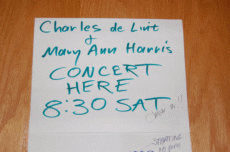 Charles de Lint
&
Mary Ann Harris
CONCERT
HERE
8:30 SAT